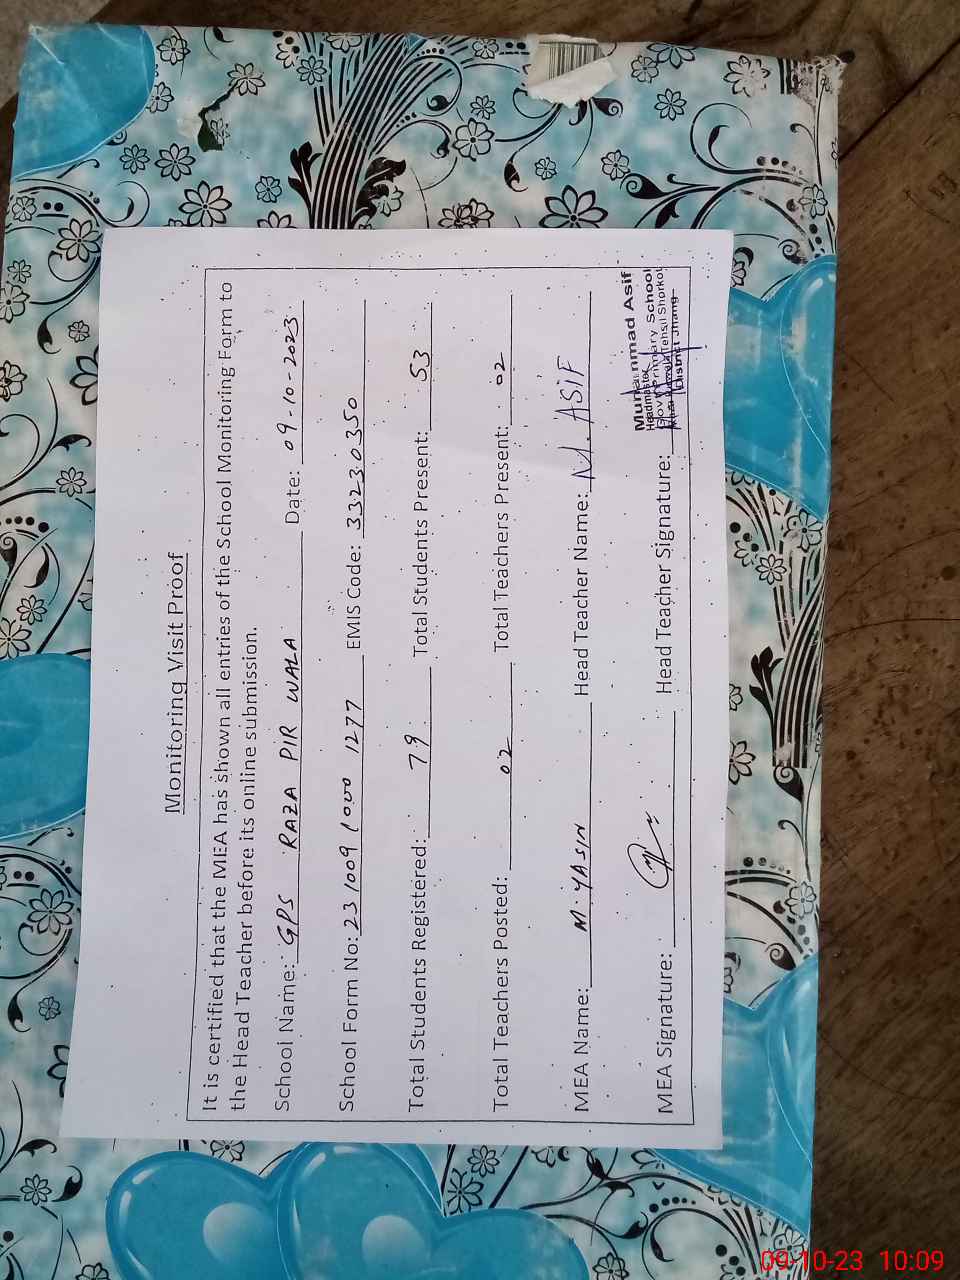 Monitoring Visit Proof
It is certified that the MEA has shown all entries of the School Monitoring Form to
the Head Teacher before its online submission.
School Name: GPS RAZA PIR WALA Date: 09-10-2023
School Form No: 23 1009 1000 1277 EMIS Code: 33230350
Total Students Registered: 79 Total Students Present: 53
Total Teachers Posted: 02 Total Teachers Present: 02
MEA Name: M. YASIN Head Teacher Name: M. ASIF
MEA Signature: Head Teacher Signature:
Muhammad Asif
Headmaster
Govt Primary School
Tehsil Shorkot
District Jhang
09-10-23 10:09